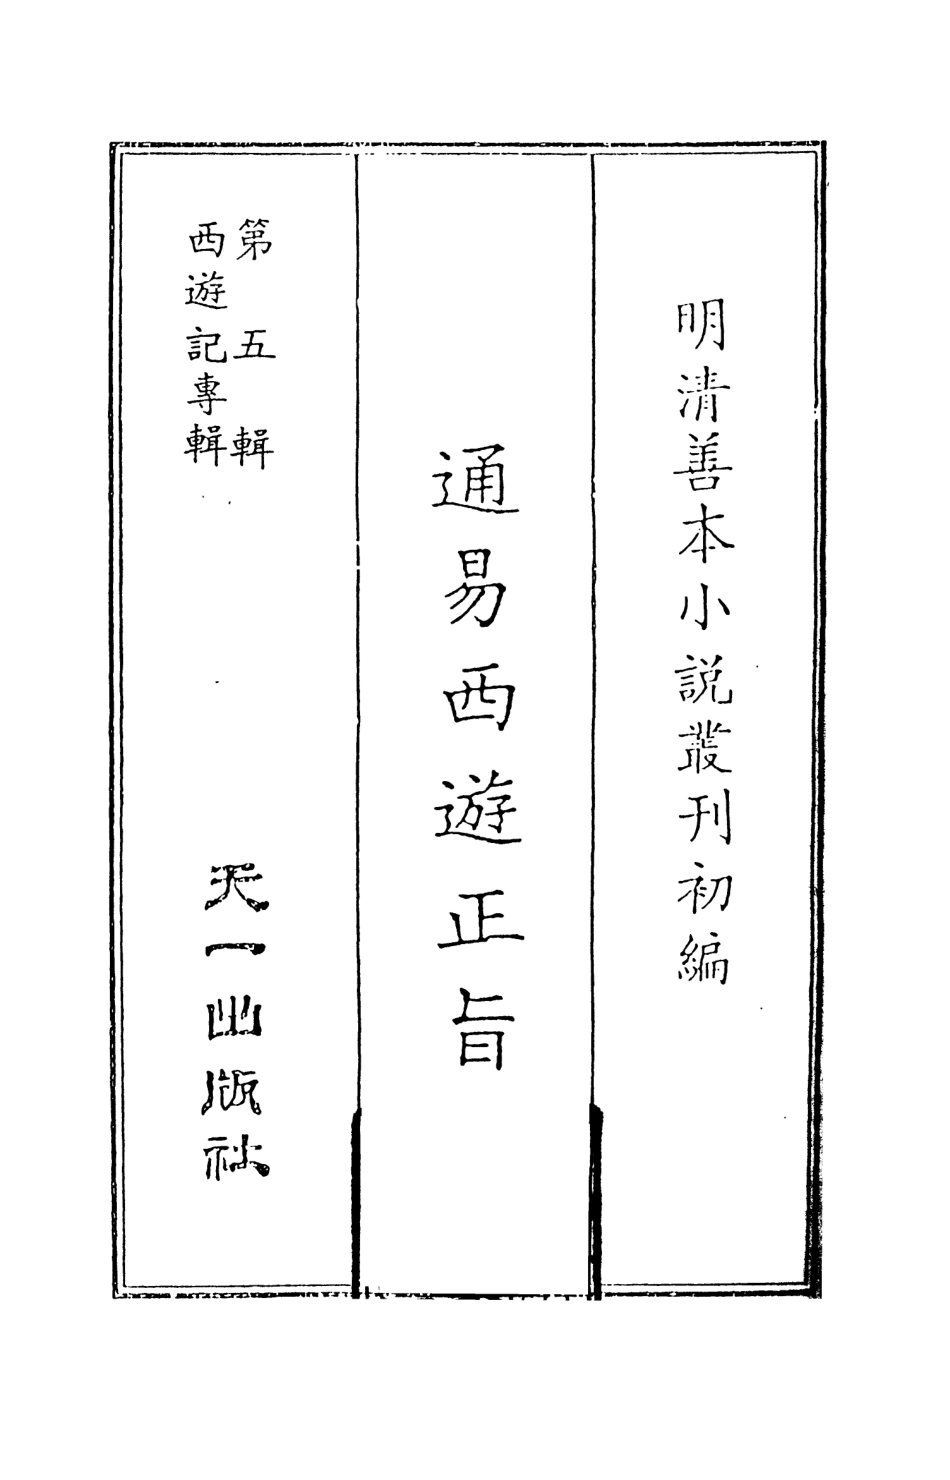 明清善本小説叢刊初編
通易西遊正旨
第五輯
西遊記專輯
天一出版社